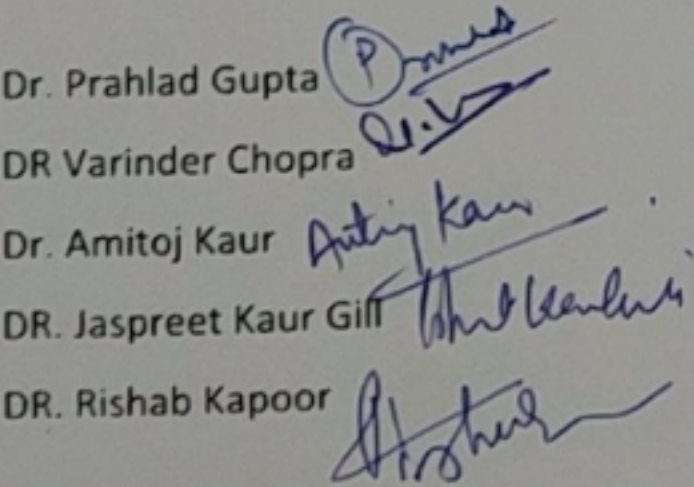 Dr. Prahlad Gupta
DR Varinder Chopra
Dr. Amitoj Kaur Kaur
DR. Jaspreet Kaur Gill
DR. Rishab Kapoor